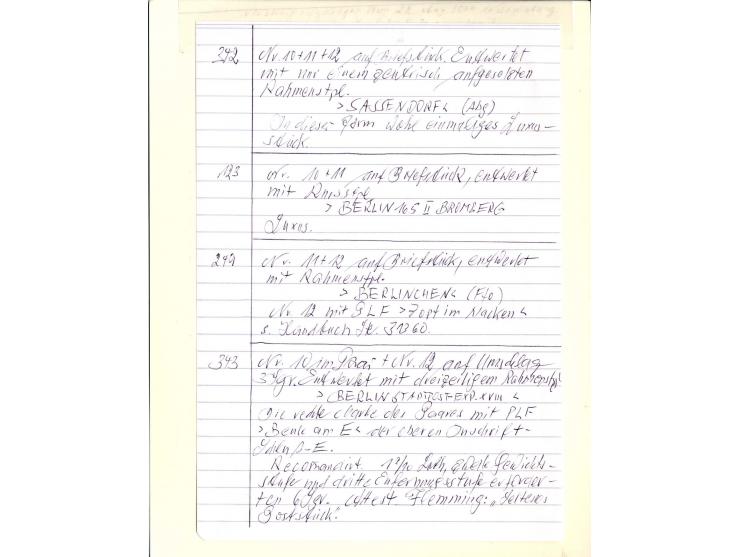 392 Nr. 10+11+12 auf Briefstück. Entwertet
mit nur einem zentrisch aufgesetzten
Rahmenstpl.
> SASSENDORF < (Abg)
In dieser Form wohl einmaliges Luxus-
stück.
123 Nr. 10+11 auf Briefstück, entwertet
mit Kursstpl.
> BERLIN 165 II BROMBERG
Luxus.
292 Nr. 11+12 auf Briefstück, entwertet
mit Rahmenstpl.
> BERLINCHEN < (Ffo)
Nr. 12 mit PLF > Zopf im Nacken <
s. Handbuch St. 31060.
393 Nr. 10 im Paar + Nr. 12 auf Umschlag
3 Sgr. Entwertet mit dreizeiligem Rahmenstpl.
> BERLIN STADTPOST-EXP. XVIII <
Die rechte Marke des Paares mit PLF
> Beule am E < der oberen Inschrift-
Recomandirt. Loth, Gewichts-
stufe und dritte Entfernungsstufe erforder-
ten 6 Sgr. Attest. Flemming: "Seltenes
Poststück."